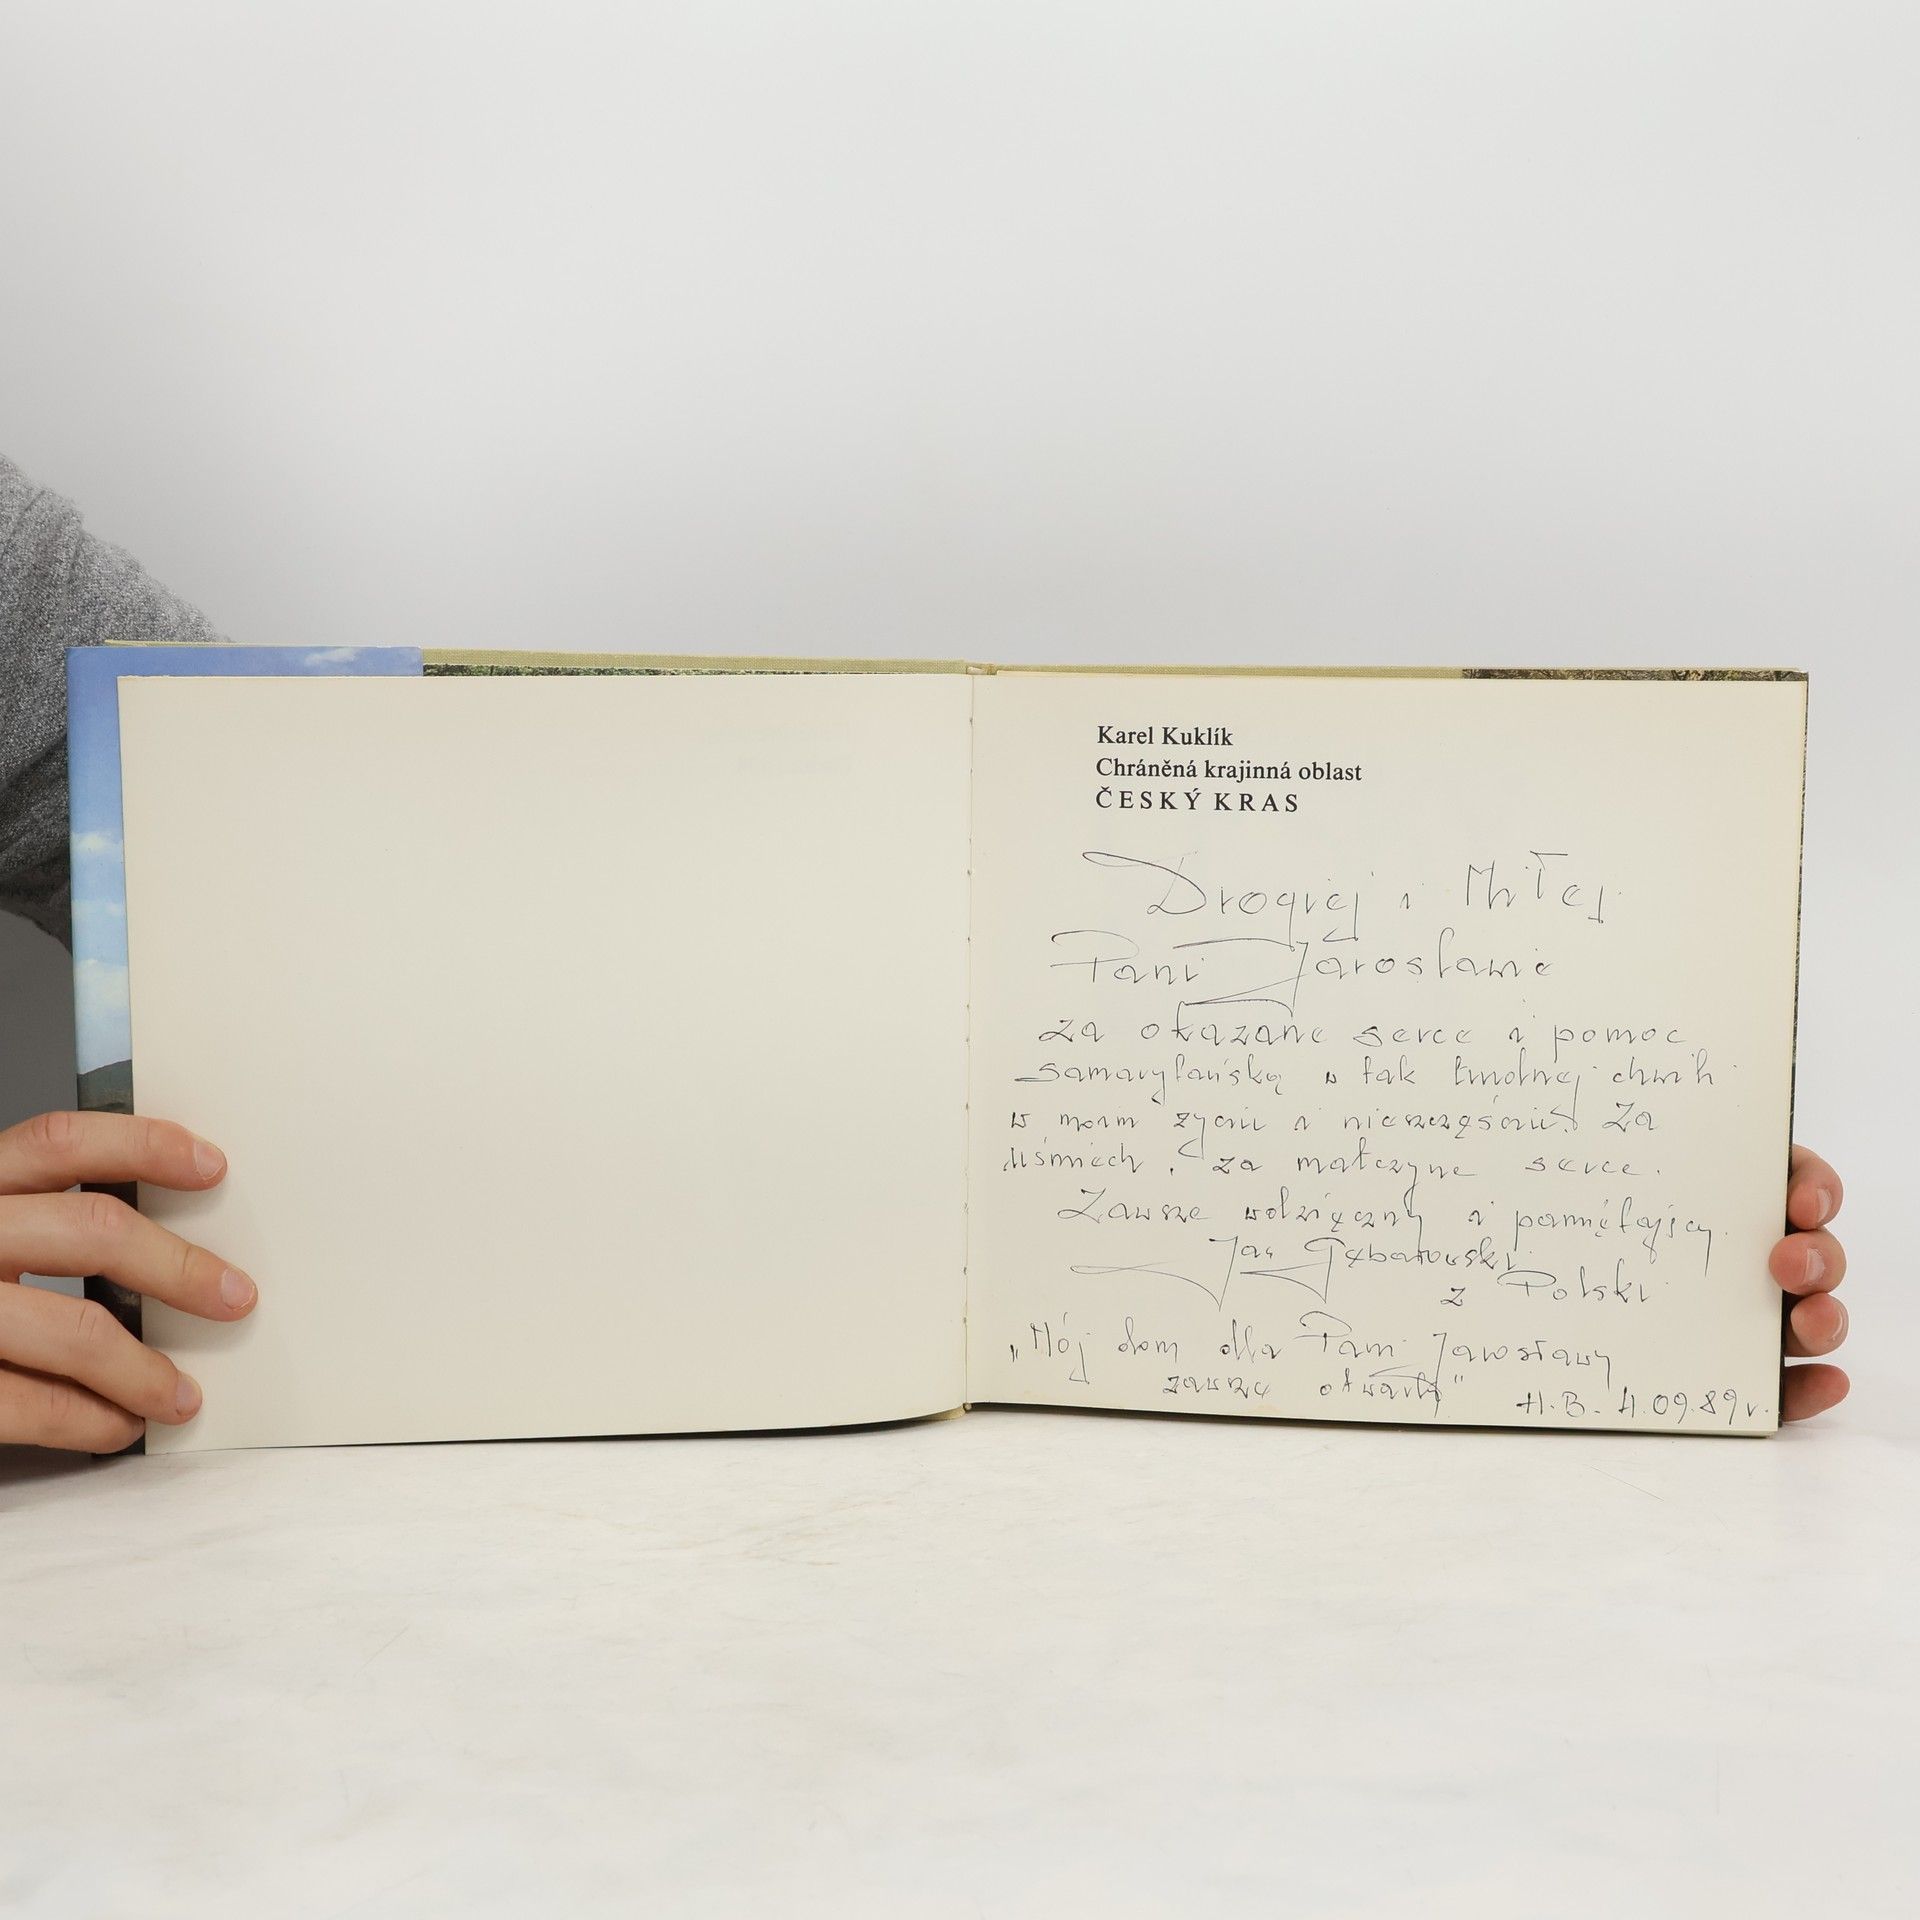 Karel Kuklík
Chráněná krajinná oblast
ČESKÝ KRAS
Drogiej i Miłej
Pani Jarosławie
za okazane serce i pomoc
samarytańską w tak trudnej chwili
w moim życiu i nieszczęściu. Za
uśmiech, za matczyne serce.
Zawsze wdzięczny i pamiętający
Jan
z Polski
„Mój dom dla Pani Jarosławy
zawsze otwarty"
H.B. 4.09.89r.